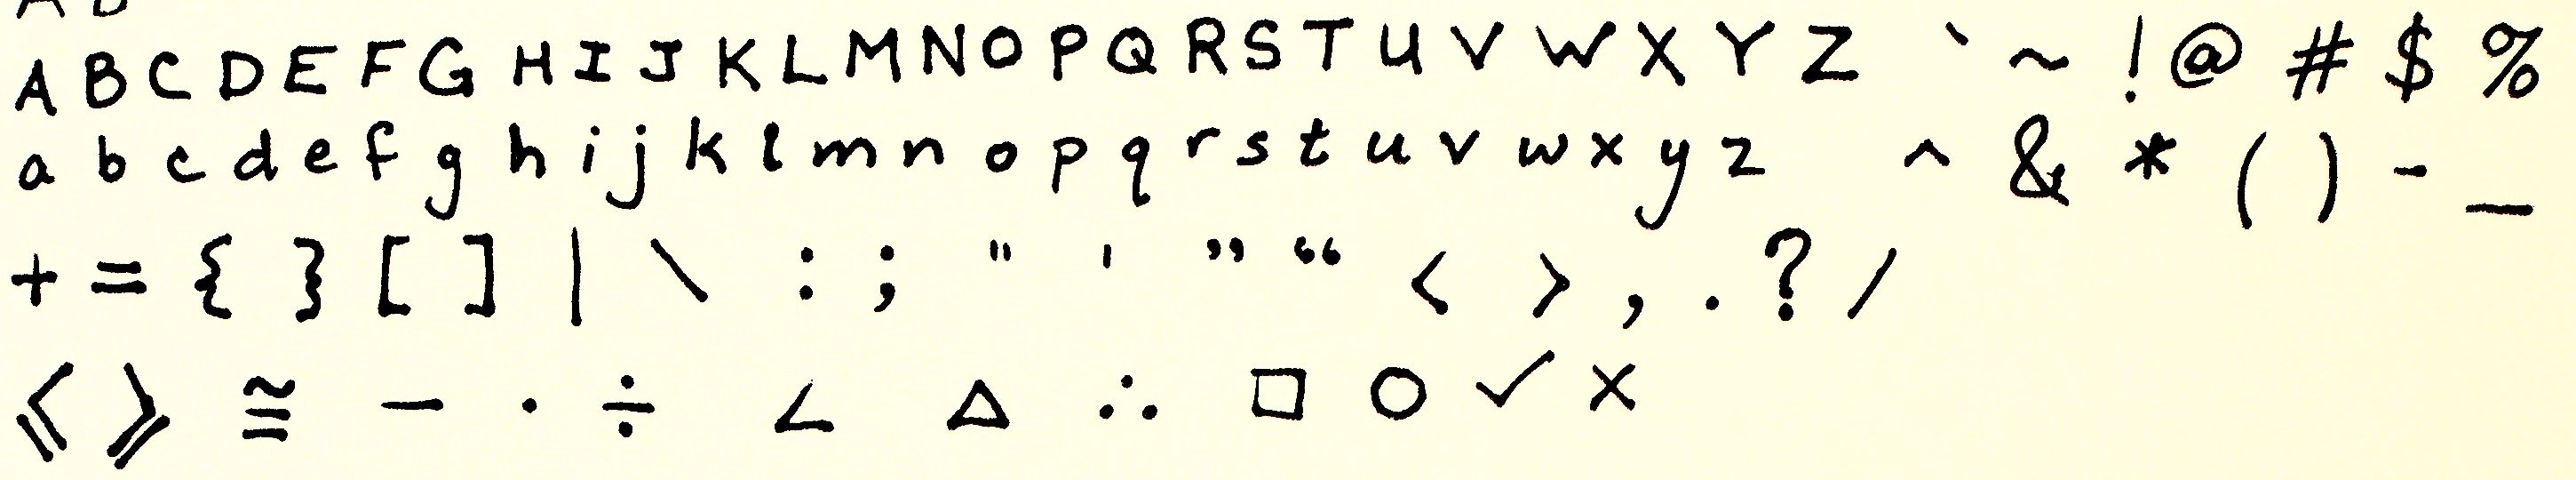 A B C D E F G H I J K L M N O P Q R S T U V W X Y Z ` ~ ! @ # $ %
a b c d e f g h i j k l m n o p q r s t u v w x y z ^ & * ( ) - _
+ = { } [ ] | \ : ; " ' ” “ < > , . ? /
⩽ ⩾ ≅ − · ÷ ∠ △ ∴ □ ○ ✓ ×